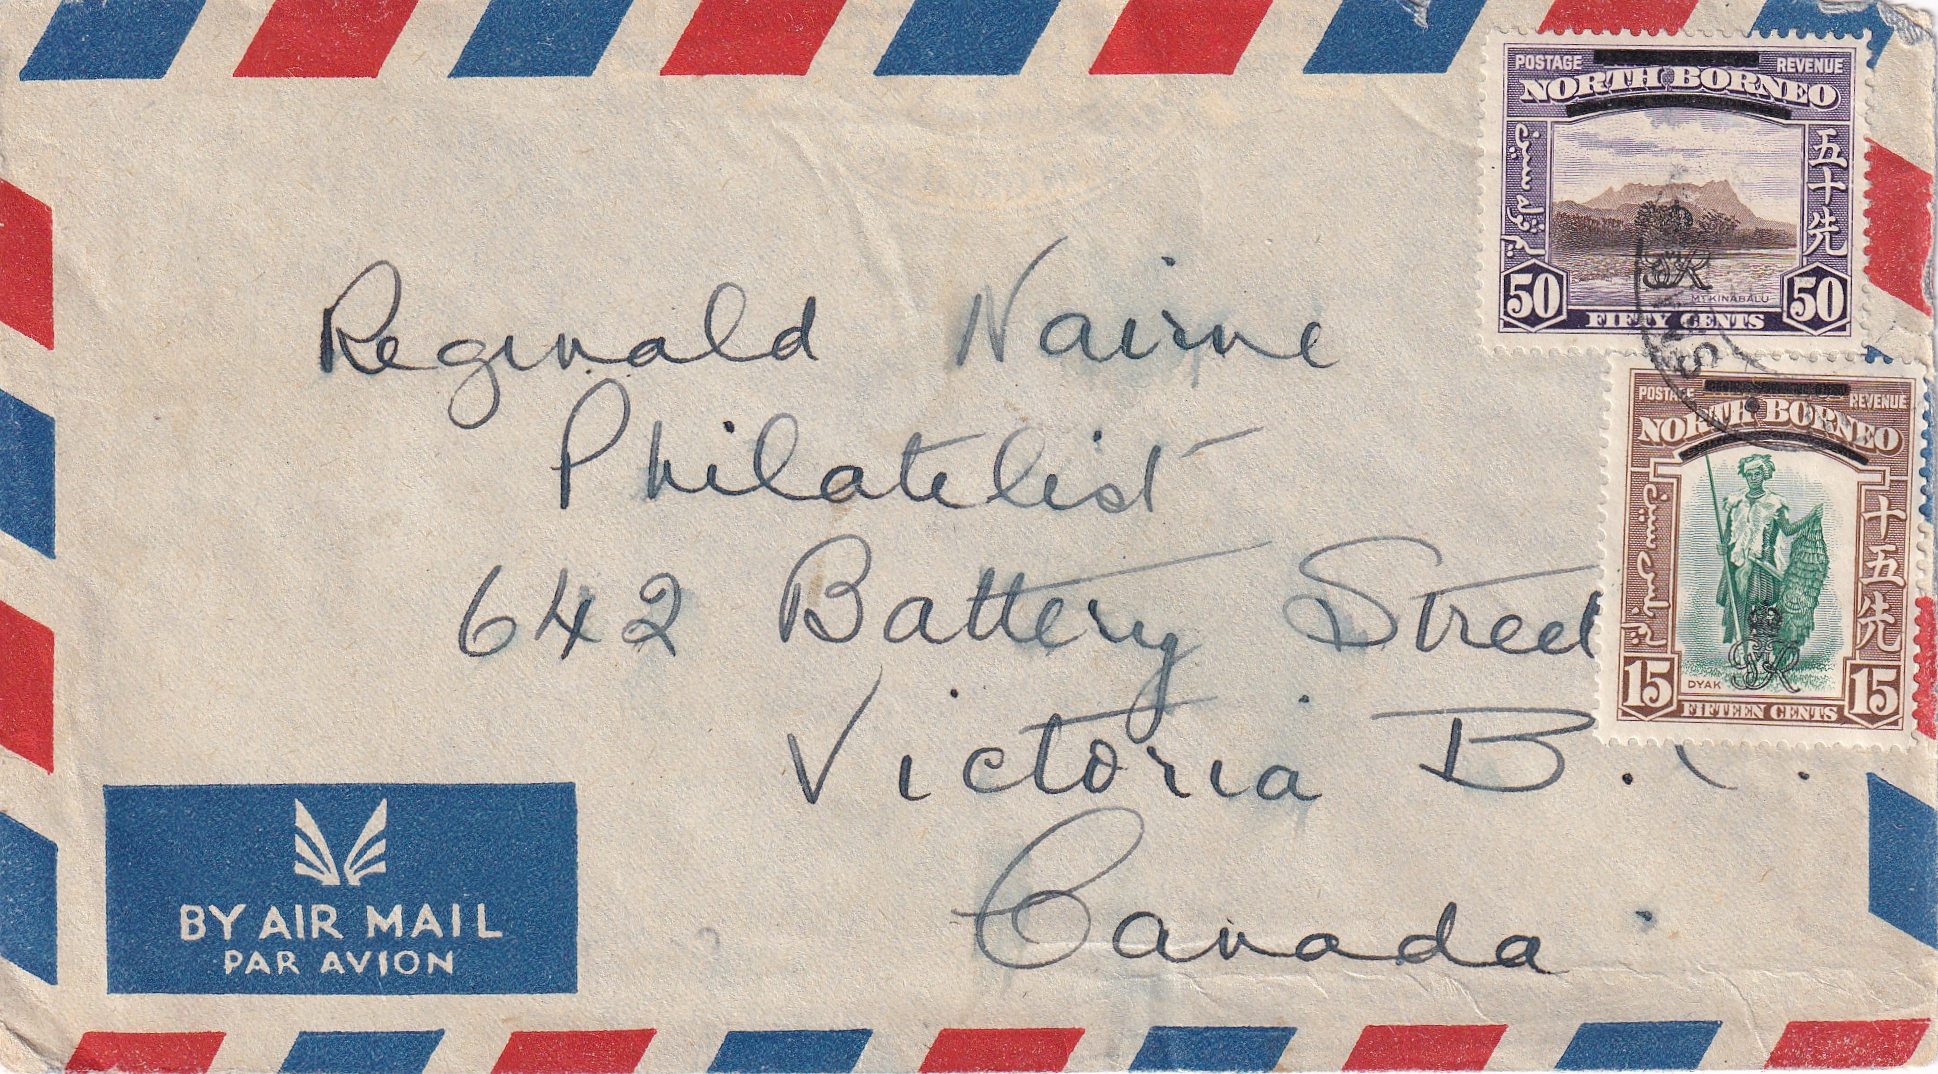 POSTAGE REVENUE
NORTH BORNEO
五十先
50 50
MT.KINABALU
FIFTY CENTS
GR
POSTAGE REVENUE
NORTH BORNEO
十五先
GR
DYAK
15 15
FIFTEEN CENTS
Reginald Nairne
Philatelist
642 Battery Street
Victoria B.C.
Canada
BY AIR MAIL
PAR AVION